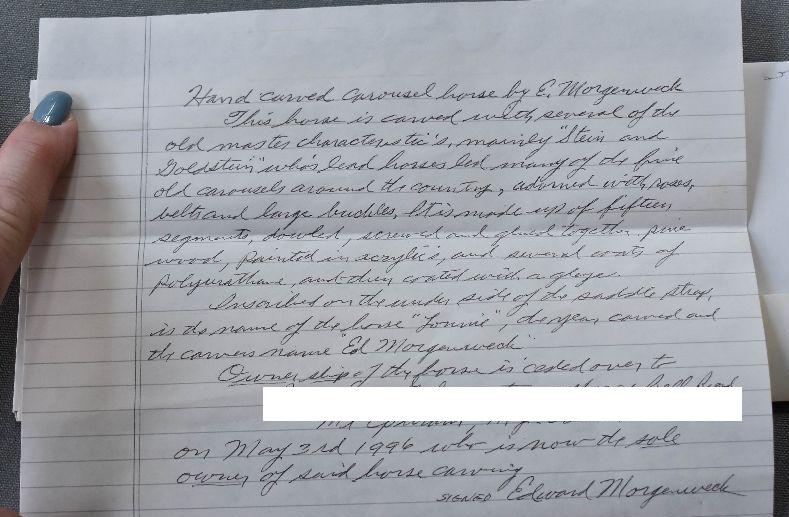 Hand carved Carousel horse by E. Morgenweck
This horse is carved with several of the
old master characteristic's, mainly "Stein and
Goldstein" who's lead horses led many of the fine
old carousels around the country, adorned with roses,
belts and large buckles, It is made up of fifteen
segments, dowled, screwed and glued together, pine
wood, painted in acrylic's, and several coats of
polyurathane, and then coated with a glaze.
Inscribed on the under side of the saddle strap,
is the name of the horse "Lonnie", the year carved and
the carvers name "Ed Morgenweck"
Ownership of the horse is ceded over to
Road
Mt Ephraim,
on May 3rd 1996 who is now the sole
owner of said horse carving
SIGNED Edward Morgenweck